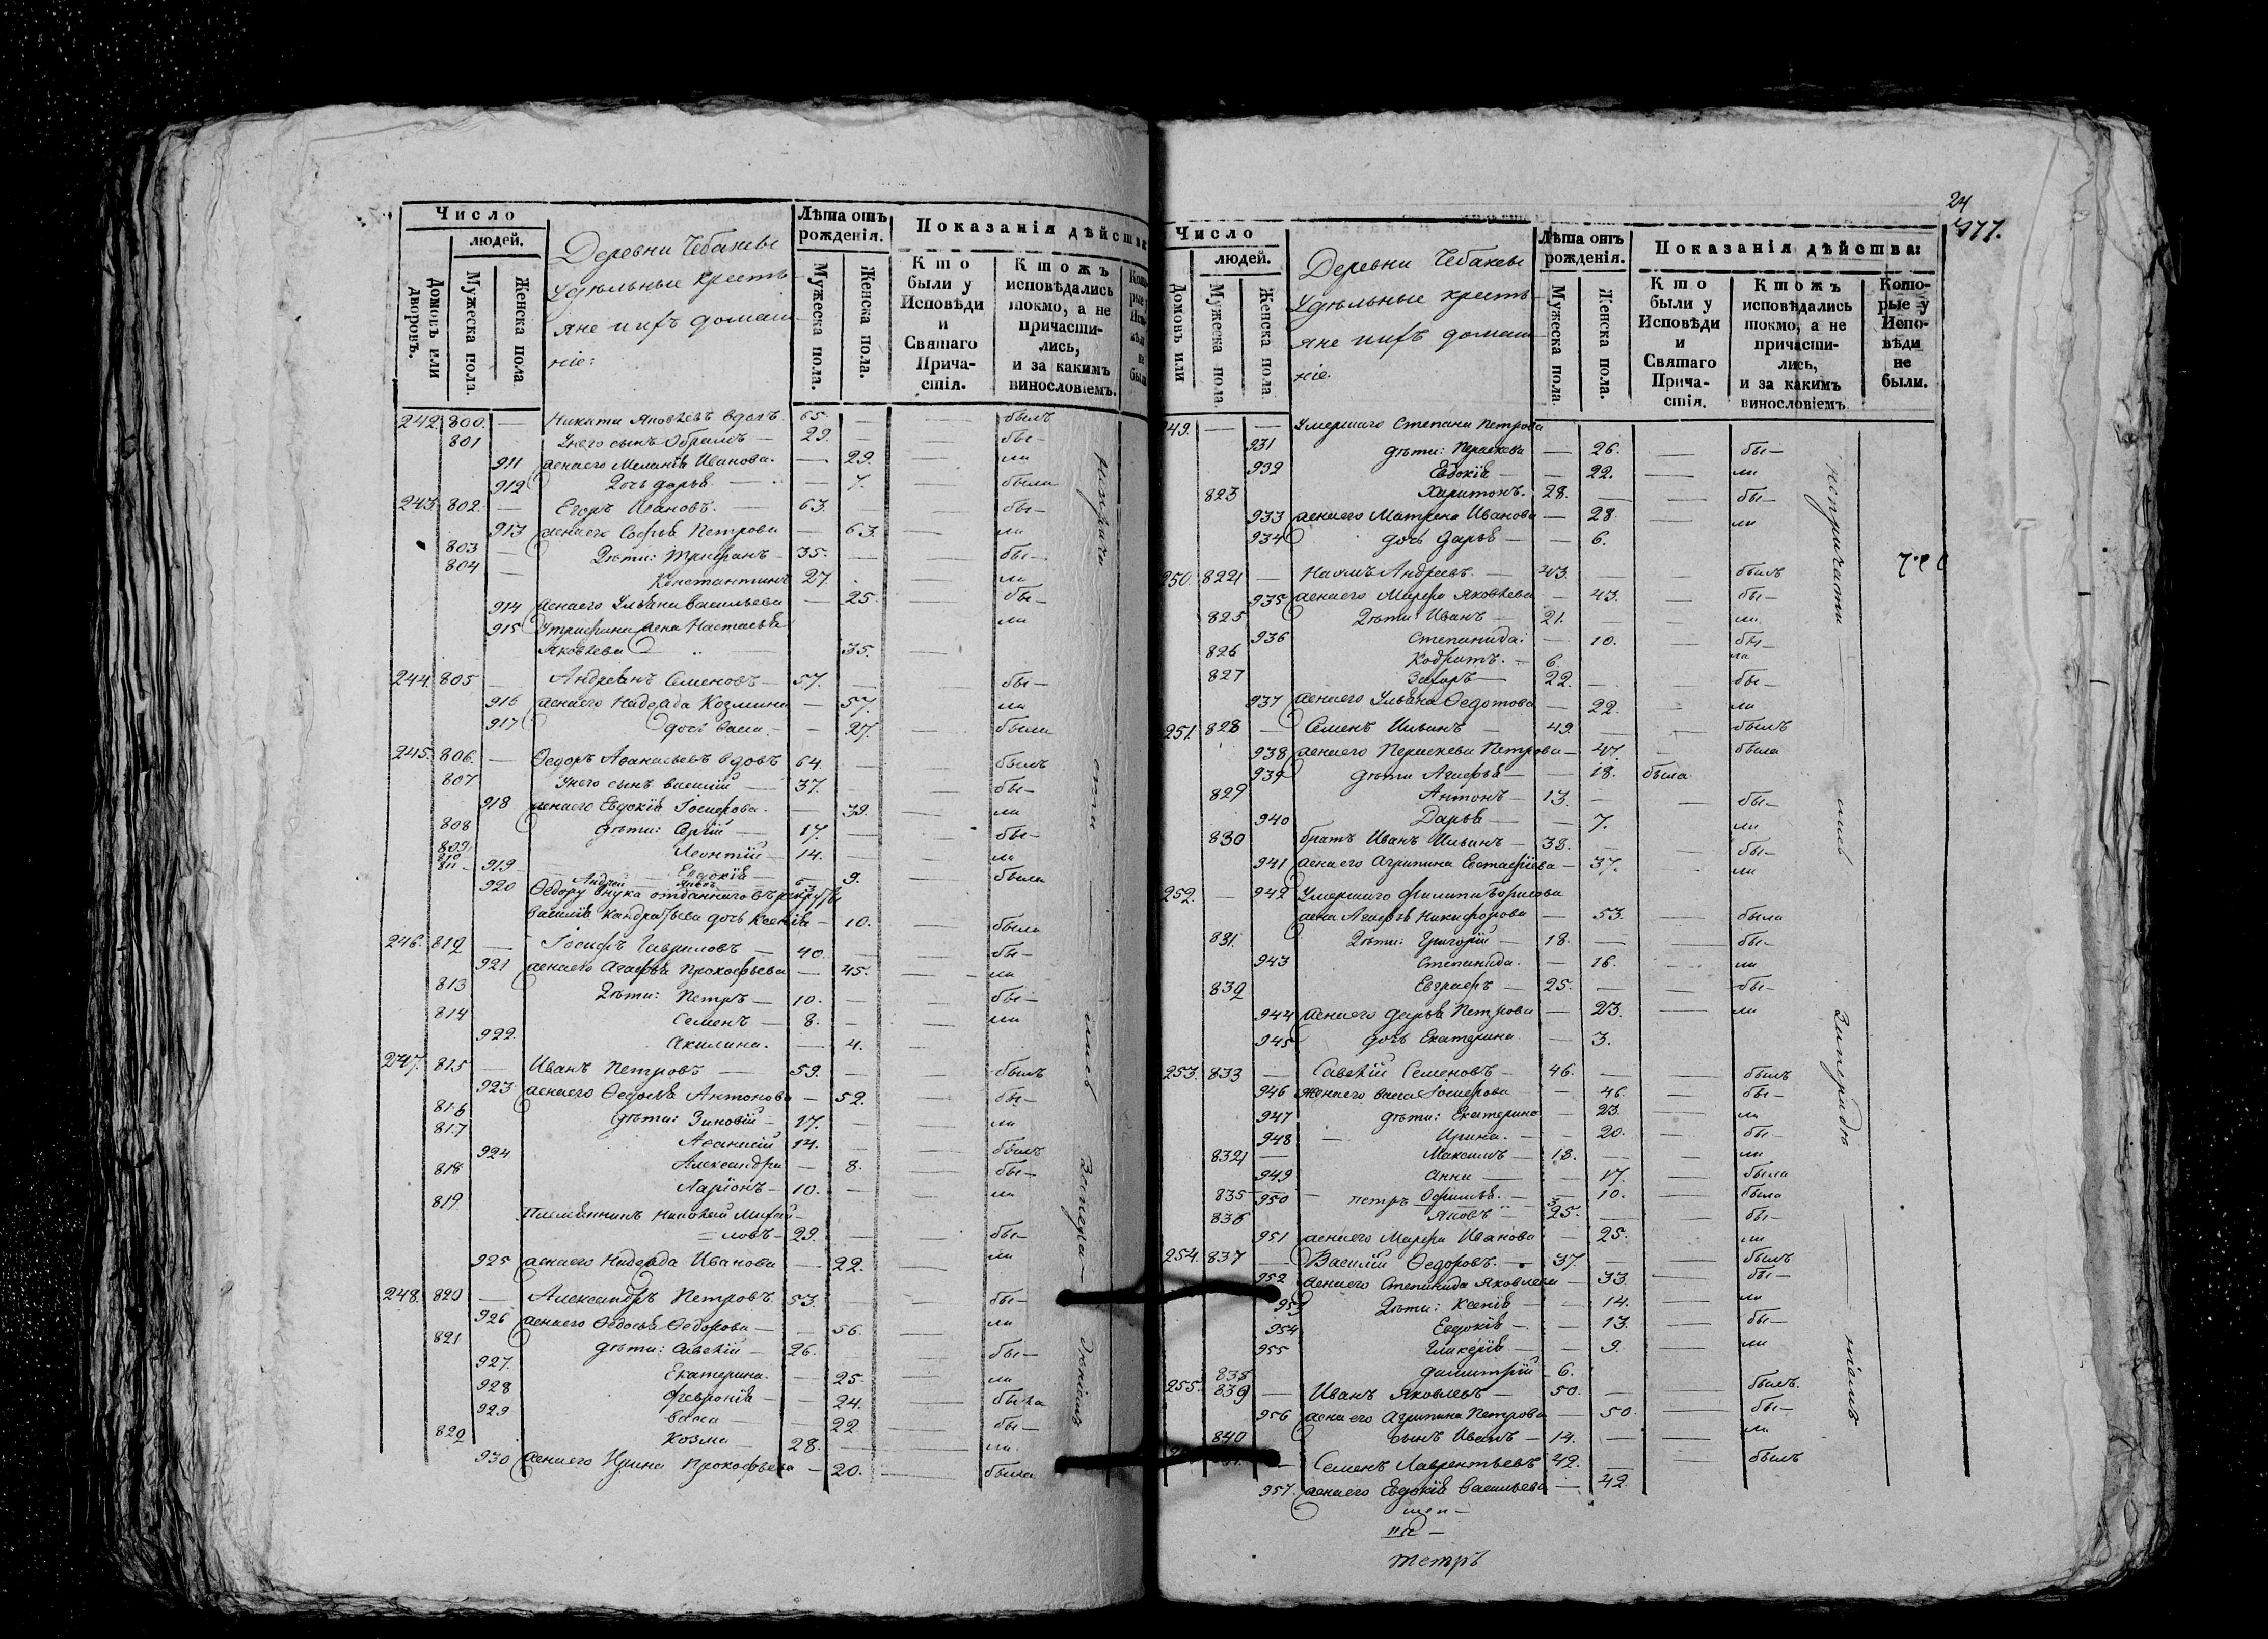 Число
людей.
Домовъ или дворовъ.
Мужеска пола.
Женска пола
Деревни Чебаневы
Удѣльные кресть-
яне ихъ домаш-
ніе:
Лѣта отъ рожденія.
Мужеска пола.
Женска пола.
Показанія дѣйства
Кто были у Исповѣди и Святаго Причастія.
Ктожъ исповѣдались токмо, а не причастились, и за какимъ винословіемъ.
242. 800. — Никита Яковлевъ вдовъ 65. — былъ
801 Унего сынъ 29. — бы-
911 женаего Меланія Иванова — 29. ли
912 дочь Дарья — 7. была
243. 802. — Егоръ Ивановъ. 63. бы-
913 женаего Софья Петрова — 63. ли
803 — Дѣти: Трифанъ — 35. — бы-
804 — Константинъ 27. ли
914 женаего Ульяна Васильева — 25. бы-
915 Утрифана жена Настасья ли
Яковлева 35.
244. 805 — Семеновъ — 57. — бы-
916 женаего Надежда Козмина — 57. ли
917 дочь Васа — 27. была
245. 806. — Ѳедоръ Аѳанасьевъ вдовъ 64. — былъ
807 Унего сынъ Василій — 37. бы-
918 женаего Евдокія Іосифова. — 39. ли
808 дѣти: Сергій — 17. — бы-
809 Леонтій — 14. — ли
810
811 919 Евдокія — 9. была
Андрей 6
920 Ѳедору внука отданнаго въ рекруты
Василія Кандратьева дочь Ксенія — 10. была
246. 812 — Іосифъ Гавриловъ — 40. — бы-
921 женаего Агафья Прокофьева — 45. ли
813 Дѣти: Петръ — 10. — бы-
814 Семенъ — 8. — ли
922. Акилина. — 4.
247. 815 — Иванъ Петровъ — 59. — былъ
923 женаего Ѳедосья Антонова — 52. бы-
816 дѣти: Зиновій — 17. — ли
817 Аѳанасій 14. — былъ
924 Александра — 8. бы-
818 Ларіонъ — 10. — ли
819 Племянникъ Николай Михай-
ловъ — 29. — бы-
925 женаего Надежда Иванова — 22. ли
248. 820 — Александръ Петровъ 53. — бы-
926 женаего Ѳедосья Ѳедорова — 56. ли
821 дѣти: Савелій — 26. бы-
927. Екатерина. — 25. ли
928 Февронія — 24. была
929 Васа — 22 бы-
822 Козма 28. — ли
930 женаего Ирина Прокофьева — 20. была
24
977.
Число
людей.
Домовъ или
Мужеска пола.
Женска пола.
Деревни Чебаневы
Удѣльные кресть-
яне ихъ домаш-
ніе.
Лѣта отъ рожденія.
Мужеска пола.
Женска пола.
Показанія дѣйства:
Кто были у Исповѣди и Святаго Причастія.
Ктожъ исповѣдались токмо, а не причастились, и за какимъ винословіемъ
Которые у Исповѣди не были.
249. — — Умершаго Степана Петрова
931 дѣти: Параскева — 26. — бы-
932 Евдокія — 22. — ли
823 Харитонъ. 28. — бы-
933 женаего Матрена Иванова — 28. — ли
934 дочь Дарья — 6.
250. 824 — Наумъ Андреевъ. — 43. — былъ
935 женаего Марѳа Яковлева — 43. — бы-
825 Дѣти: Иванъ — 21. — ли
936 Степанида: — 10. бы-
826 Кодратъ. — 6. ли
827 Захаръ — 22. — бы-
937 женаего Ульяна Ѳедотова — 22. — ли
251. 828 — Семенъ Ильинъ — 49. — былъ
938 женаего Параскева Петрова — 47. — была
939 дѣти Агафья — 18. была
829 Антонъ — 13. — бы-
940 Дарья — 7. ли
830 братъ Иванъ Ильинъ — 38. — бы-
941 женаего Агрипина Евстафіева — 37. — ли
252. — 942 Умершаго Филипа Борисова
жена Агафья Никифорова — 53. — была
831. Дѣти: Григорій — 18. — бы-
943 Степанида. — 16. ли
832 Евграфъ — 25. — бы-
944 женаего Дарья Петрова — 23. — ли
945 дочь Екатерина. — 3.
253. 833 — Савелій Семеновъ — 46. — былъ
946 женаего Васа Іосифова — 46. — бы-
947 дѣти: Екатерина — 23. — ли
948 — Ирина. — 20. — бы-
834 — Максимъ — 18. — ли
949 Анна — 17. — была
835 950 — Петръ — 3. 10. — была
836 Яковъ — 25. — бы-
951 женаего Марѳа Иванова — 25. — ли
254. 837 — Василій Ѳедоровъ. — 37. — былъ
952 женаего Степанида Яковлева — 33. — бы-
953 Дѣти: Ксенія — 14. — ли
954 Евдокія — 13. — бы-
955 Гликерія — 9. — ли
838 Димитрій — 6.
255. 839 — Иванъ Яковлевъ — 50. — былъ.
956 жена его Агрипина Петрова — 50. — бы-
840 сынъ Иванъ — 14. — ли
— Семенъ Лаврентьевъ 42. — былъ
957. женаего Евдокія Васильева — 42.